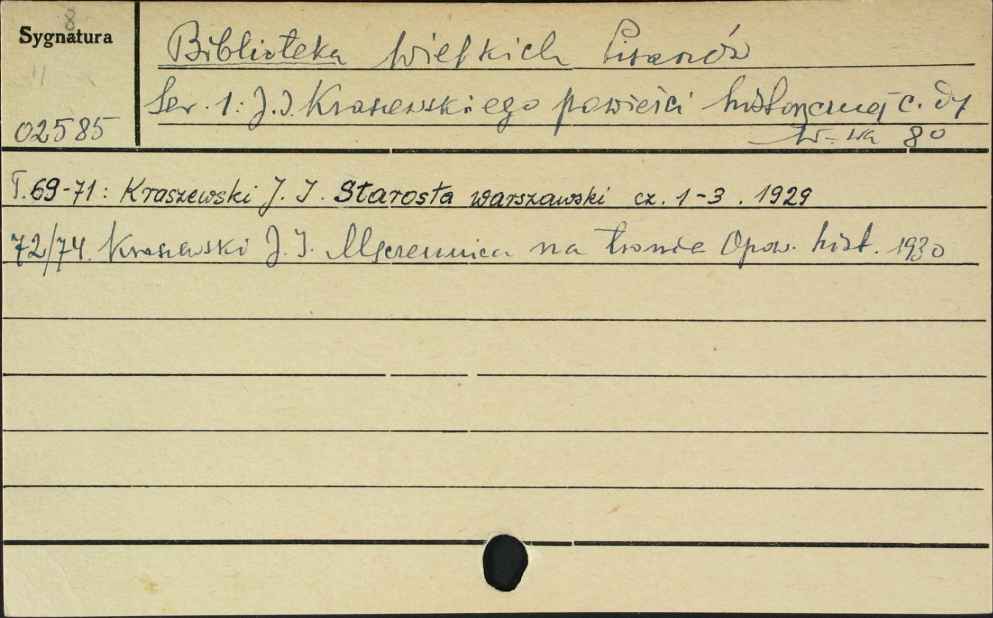 8
Sygnatura
11
02585
Biblioteka Wielkich Pisarzów
Ser. 1: J.I. Kraszewskiego powieści historycznej c. dy
W-wa 80
T. 69-71: Kraszewski J. I. Starosta warszawski cz. 1-3. 1929
72/74. Kraszewski J. I. Męczennica na tronie Opow. hist. 1930